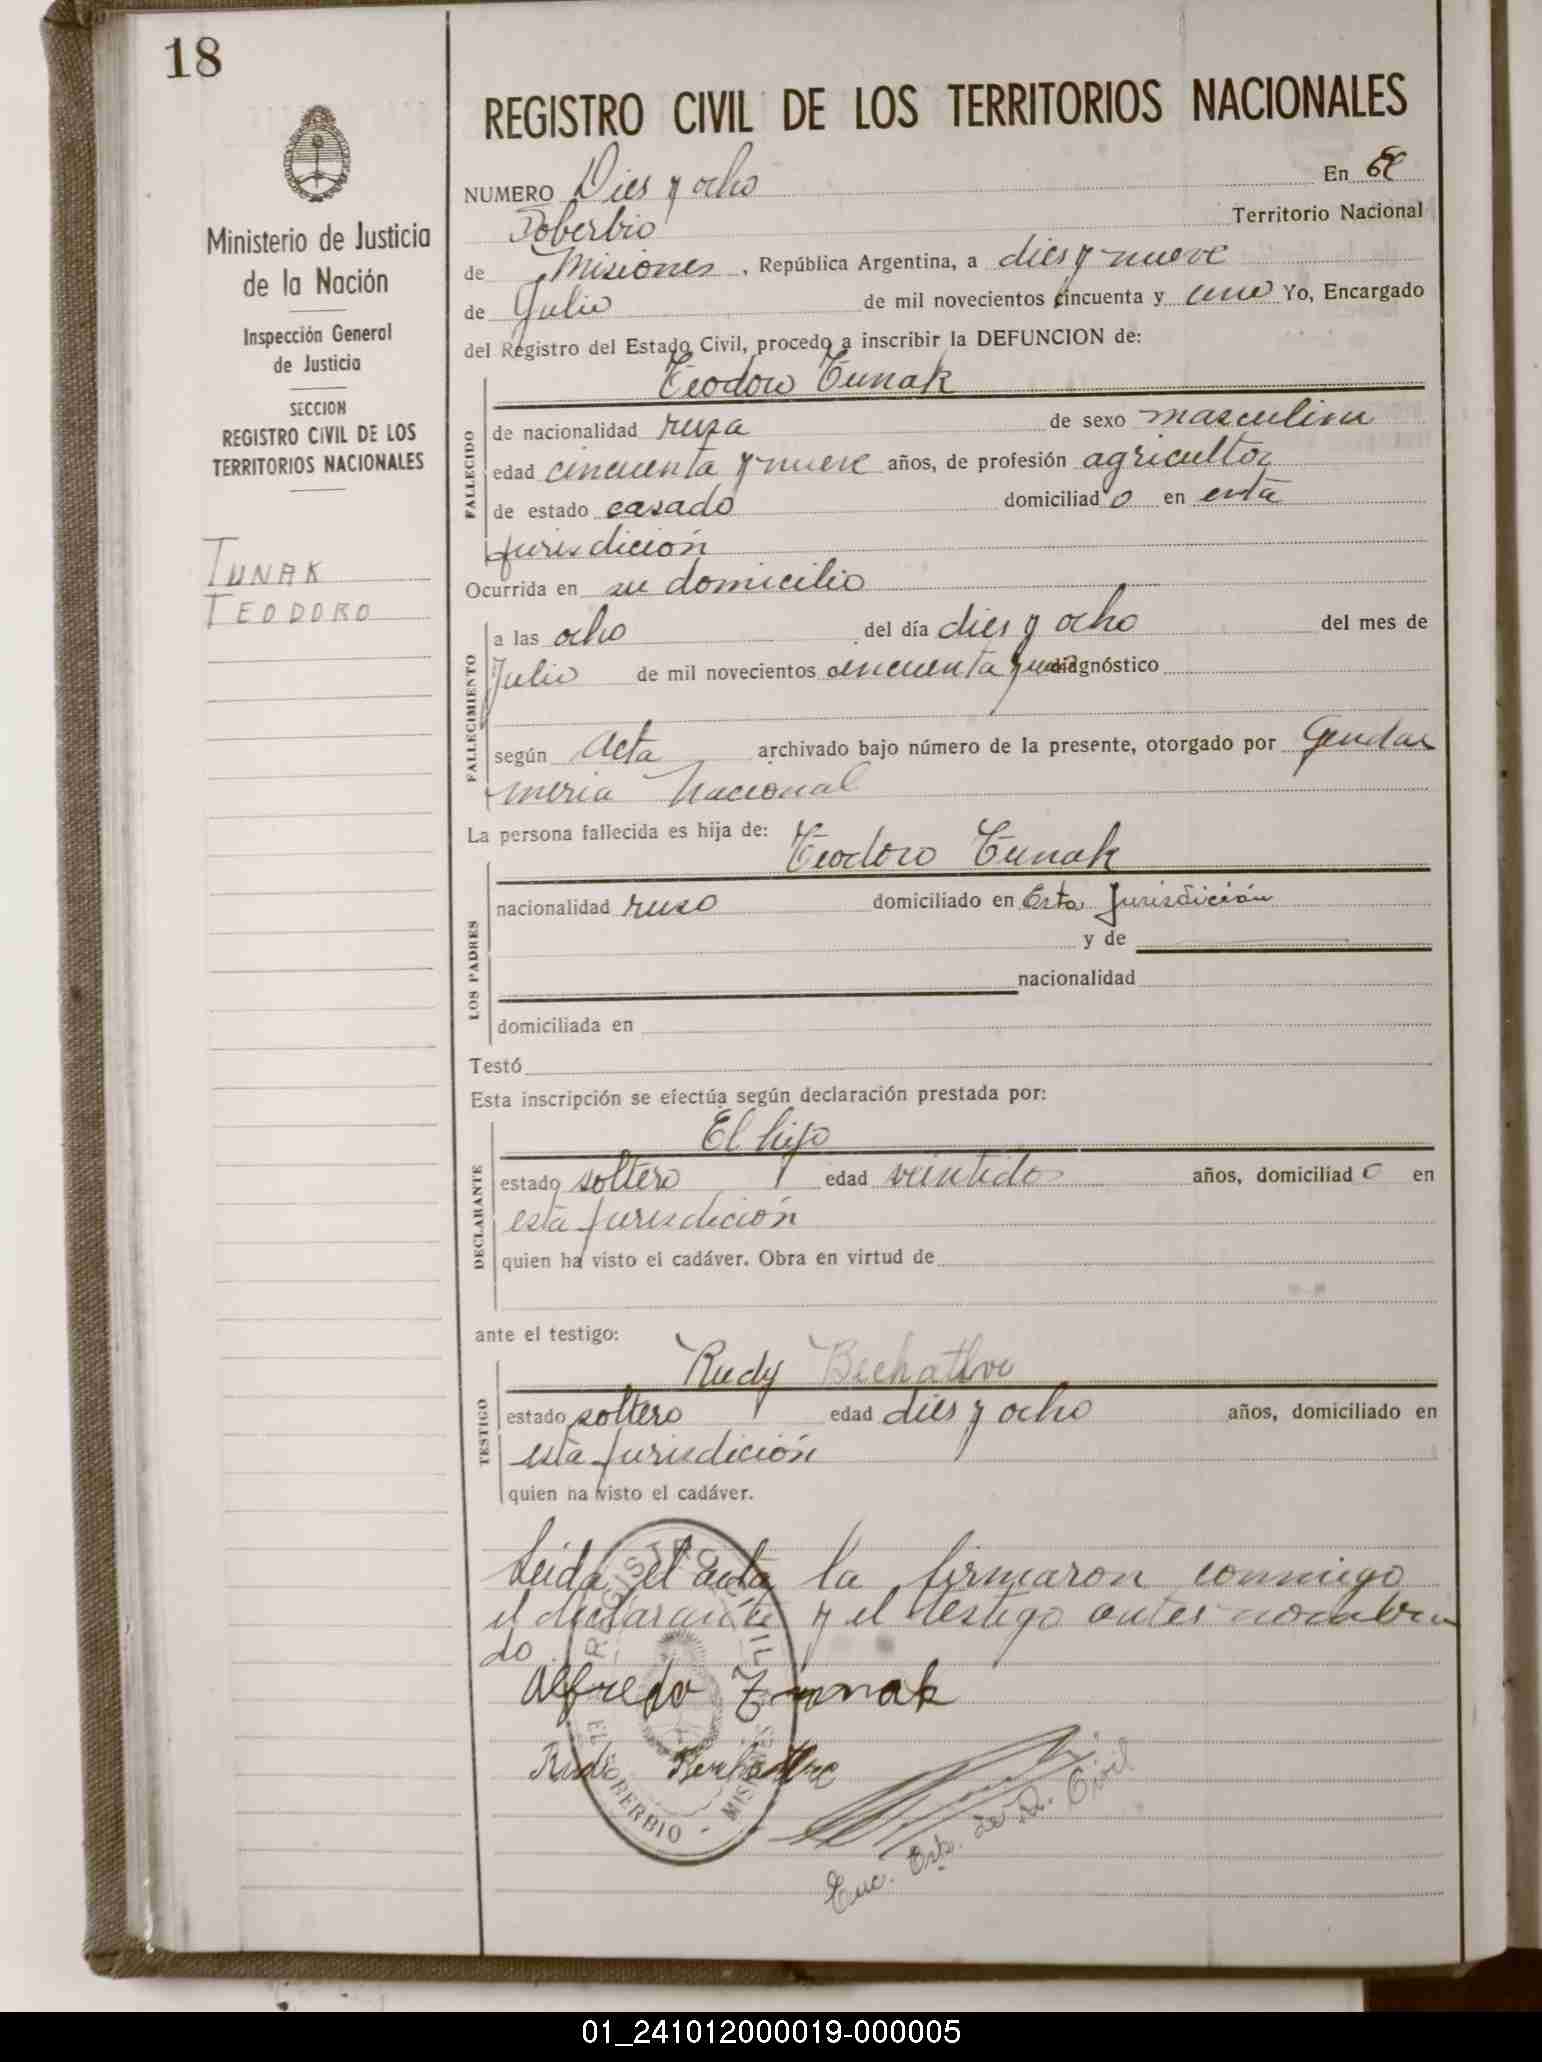 18
Ministerio de Justicia
de la Nación
Inspección General
de Justicia
SECCION
REGISTRO CIVIL DE LOS
TERRITORIOS NACIONALES
TUNAK
TEODORO
REGISTRO CIVIL DE LOS TERRITORIOS NACIONALES
NUMERO Dies y ocho En El
Soberbio Territorio Nacional
de Misiones, República Argentina, a dies y nueve
de Julio de mil novecientos cincuenta y uno Yo, Encargado
del Registro del Estado Civil, procedo a inscribir la DEFUNCION de:
Teodoro Tunak
FALLECIDO
de nacionalidad rusa de sexo masculino
edad cincuenta y nueve años, de profesión agricultor
de estado casado domiciliado en esta
jurisdición
Ocurrida en su domicilio
FALLECIMIENTO
a las ocho del día dies y ocho del mes de
Julio de mil novecientos cincuenta y uno diagnóstico
según Acta archivado bajo número de la presente, otorgado por Gendar
meria Nacional
La persona fallecida es hija de:
Teodoro Tunak
LOS PADRES
nacionalidad ruso domiciliado en Esta Jurisdición
y de
nacionalidad
domiciliada en
Testó
Esta inscripción se efectúa según declaración prestada por:
El hijo
DECLARANTE
estado soltero edad veintidos años, domiciliado en
esta jurisdición
quien ha visto el cadáver. Obra en virtud de
ante el testigo:
Rudy
TESTIGO
estado soltero edad dies y ocho años, domiciliado en
esta jurisdición
quien ha visto el cadáver.
Leida el acta la firmaron conmigo
el declarante y el testigo antes nombra
do
Alfredo Tunak
REGISTRO CIVIL
EL SOBERBIO - MISIONES
Enc. de R. Civil
01_241012000019-000005